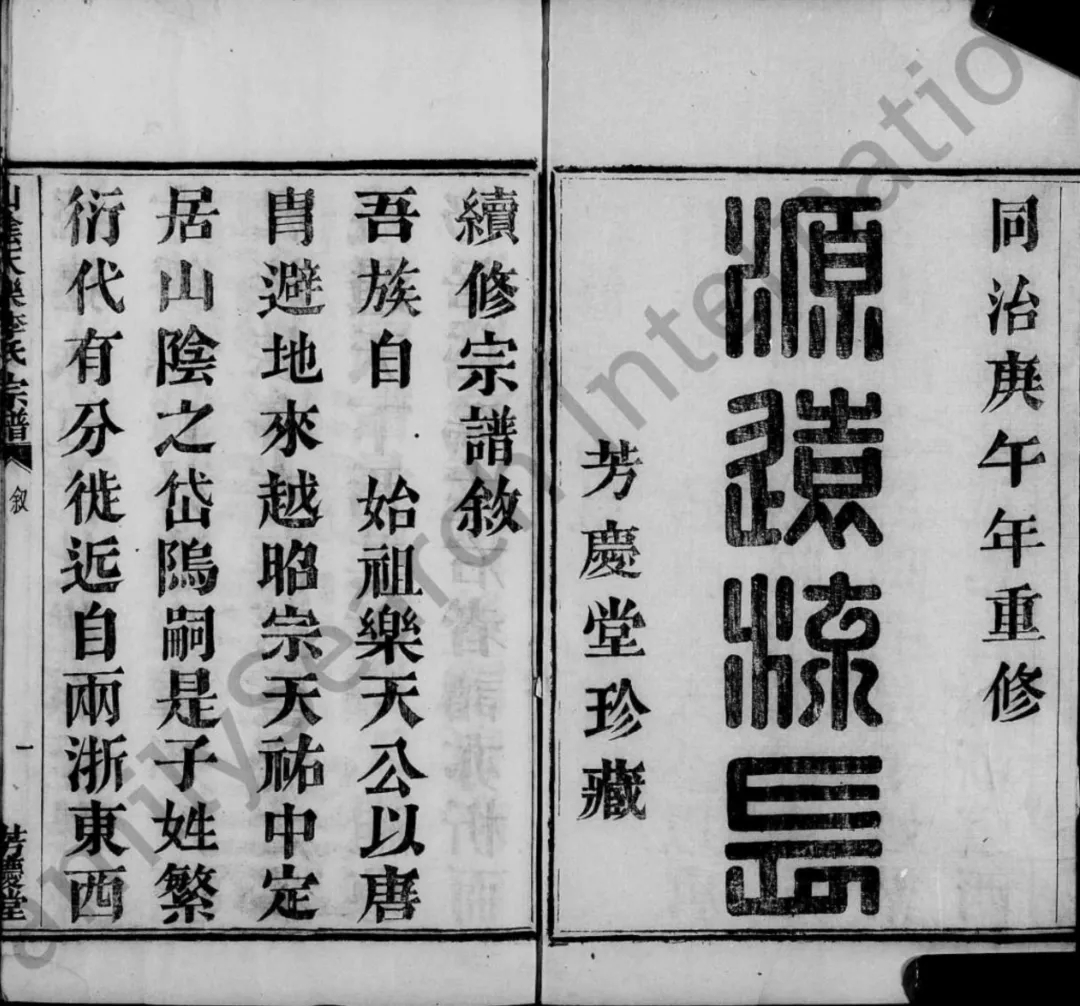 同治庚午年重修
源遠流長
芳慶堂珍藏
續修宗譜敘
吾族自 始祖樂天公以唐
胄避地來越昭宗天祐中定
居山陰之岱隝嗣是子姓繁
衍代有分徙近自兩浙東西
山陰天樂李氏宗譜 敘 一 芳慶堂
FamilySearch International